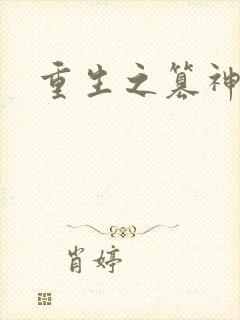 重生之篡神
肖婷